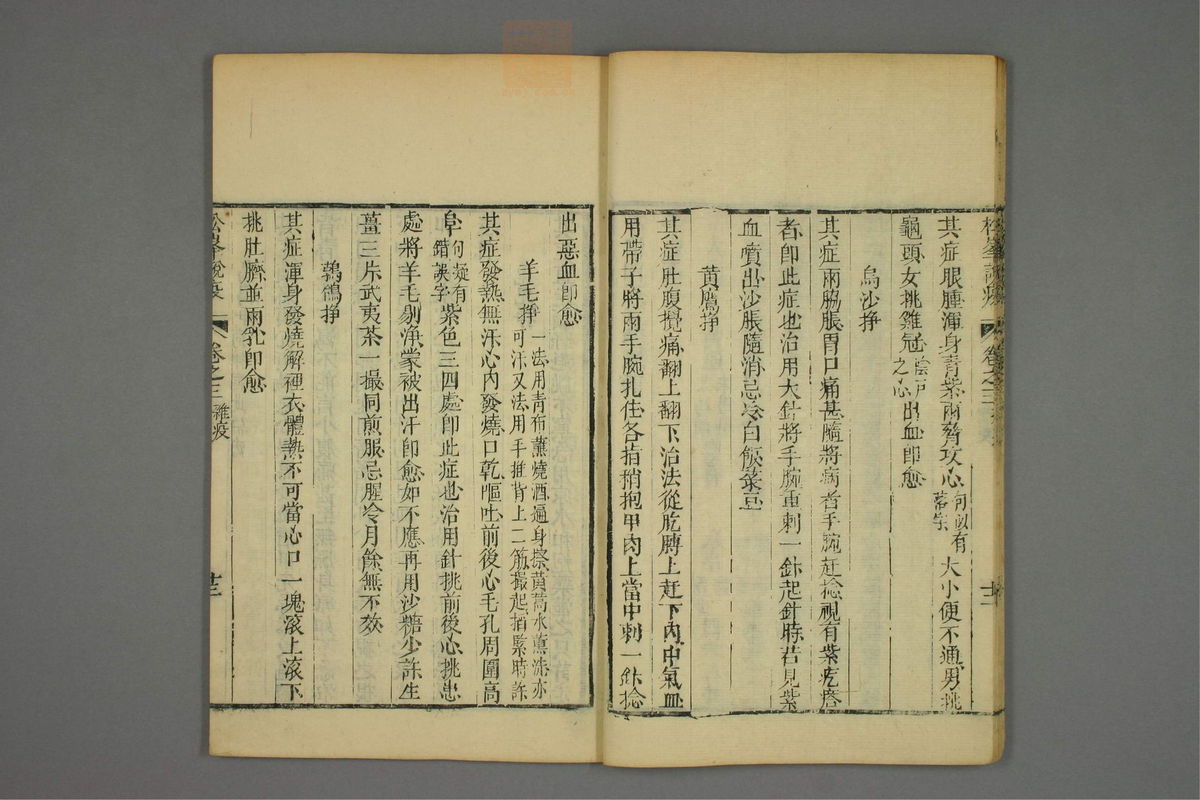 其症眼腫渾身青紫兩脅攻心句似有落字大小便不通男挑
龜頭女挑雞冠陰戶之心出血即愈
烏沙掙
其症兩脇脹胃口痛甚隨將病者手腕赶捻視有紫疙瘩
者即此症也治用大針將手腕重刺一針起針時若見紫
血噴出沙脹隨消忌冷白飯菜豆
黄鷹掙
其症肚腹攪痛翻上翻下治法從肐膊上赶下肉中氣血
用帶子將兩手腕扎住各指梢抱甲肉上當中刺一針捻
出惡血即愈
羊毛掙一法用青布蘸燒酒遍身擦黄蒿水薰洗亦可汗又法用手推背上二筋撮起掐緊時許
其症發熱無汗心内發燒口乾嘔吐前後心毛孔周圍高
阜句疑有錯誤字紫色三四處即此症也治用針挑前後心挑患
處將羊毛剔净蒙被出汗即愈如不應再用沙糖少許生
薑三片武夷茶一撮同煎服忌腥冷月餘無不效
鵓鴿掙
其症渾身發燒解褈衣體熱不可當心口一塊滚上滚下
挑肚臍並兩乳即愈
松峯說疫 卷之三 雜疫